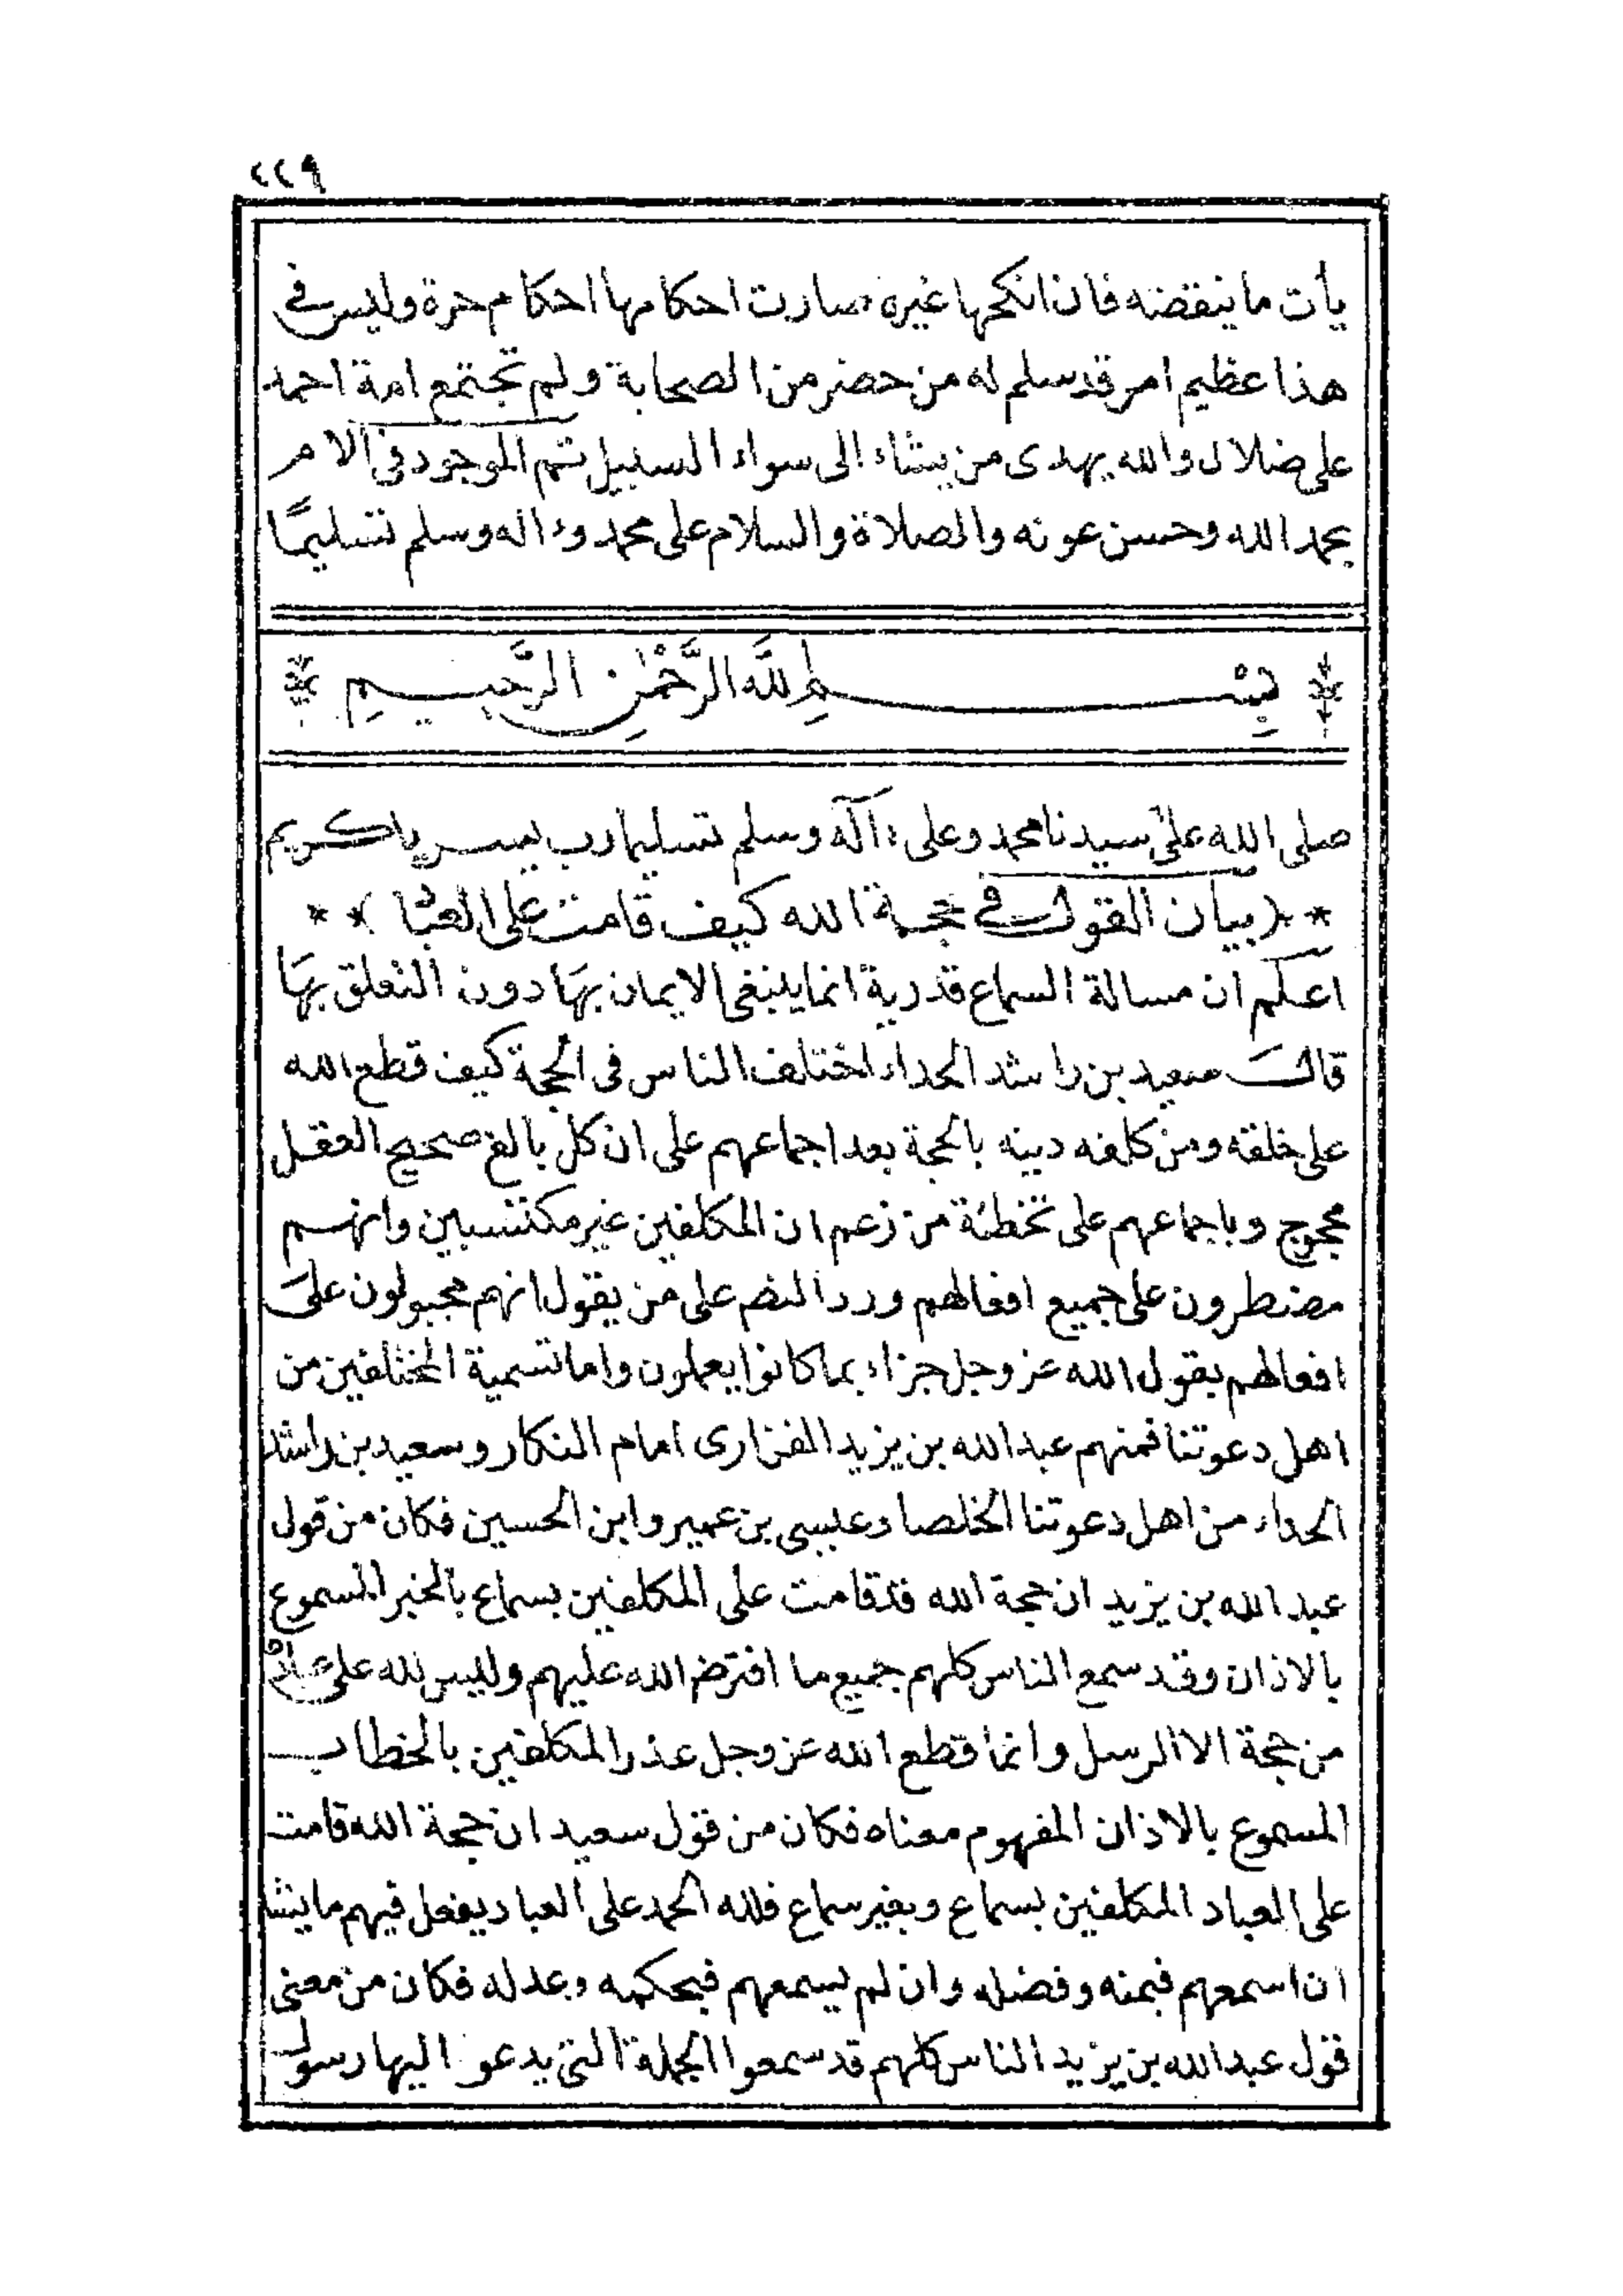 ٢٢٩
يأت ما ينقضه فان انكحها غيره صارت احكامها احكام حرة وليس في
هذا عظيم امر قد سلم له من حضر من الصحابة ولم تجتمع امة احمد
على ضلال والله يهدى من يشاء الى سواء السبيل تم الموجود في الام
بحمد الله وحسن عونه والصلاة والسلام على محمد وءاله وسلم تسليمًا
بِسْمِ اللَّهِ الرَّحْمٰنِ الرَّحِيمِ
صلى الله على سيدنا محمد وعلى ءاله وسلم تسليما رب يسر يا كريم
* ( بيان القول في حجة الله كيف قامت على العباد ) * *
اعلم ان مسالة السماع قدرية انما ينبغى الايمان بهَا دون التعلق بهَا
قال سعيد بن راشد الحداء اختلف الناس فى الحجة كيف قطع الله
على خلقه ومن كلفه دينه بالحجة بعد اجماعهم على ان كل بالغ صحيح العقل
محجوج وباجماعهم على تخطئة من زعم ان المكلفين غير مكتسبين وانهم
مضطرون على جميع افعالهم ورد النص على من يقول انهم مجبولون على
افعالهم بقول الله عز وجل جزاء بما كانوا يعملون واما تسمية المختلفين من
اهل دعوتنا فمنهم عبد الله بن يزيد الفزارى امام النكار وسعيد بن راشد
الحداء من اهل دعوتنا الخلصا وعيسى بن عمير وابن الحسين فكان من قول
عبد الله بن يزيد ان حجة الله قد قامت على المكلفين بسماع بالخبر المسموع
بالاذان وقد سمع الناس كلهم جميع ما افترض الله عليهم وليس لله على عباده
من حجة الا الرسل وانما قطع الله عز وجل عذر المكلفين بالخطاب
المسموع بالاذان المفهوم معناه فكان من قول سعيد ان حجة الله قامت
على العباد المكلفين بسماع وبغير سماع فلله الحمد على العباد يفعل فيهم ما يشا
ان اسمعهم فبمنه وفضله وان لم يسمعهم فبحكمه وعدله فكان من معنى
قول عبد الله بن يزيد الناس كلهم قد سمعوا الجملة التى يدعو اليها رسول